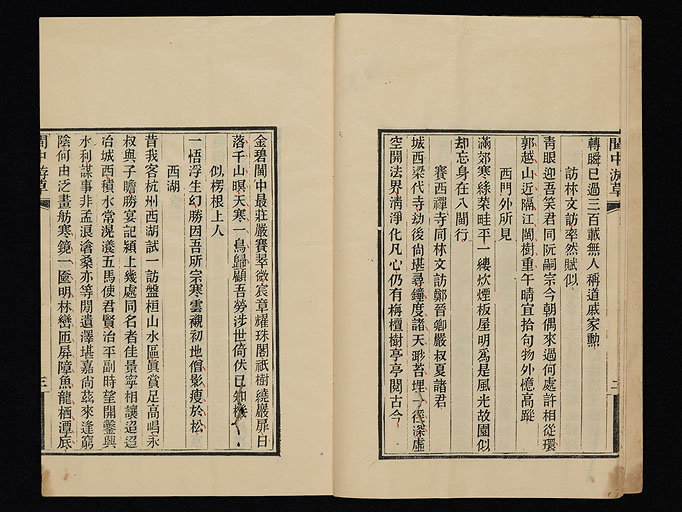 閩中游草
轉瞬已過三百載無人稱道戚家勳
訪林文訪率然賦似
靑眼迎吾笑君同阮嗣宗今朝偶來過何處許相從環
郭越山近隔江閩樹重午晴宜拾句物外憶高蹤
西門外所見
滿郊寒綠菜畦平一縷炊煙板屋明爲是風光故園似
却忘身在八閩行
賽西禪寺同林文訪鄭晉卿嚴叔夏諸君
城西梁代寺劫後尙堪尋鐘度諸天聊苔埋一徑深虛
空開法界淸淨化凡心仍有栴檀樹亭亭閱古今
二
金碧閩中最莊嚴賽翠微宸章耀珠閣祇樹繞巖扉白
落千山暝天寒一鳥歸顧吾勞涉世倚伏已知機
似楞根上人
一悟浮生幻勝因吾所宗寒雲襯初地僧影瘦於松
西湖
昔我客杭州西湖試一訪盤桓山水區眞賞足高唱永
叔與子瞻勝宴記潁上幾處同名者佳景寧相讓迢迢
冶城西積水常滉瀁五馬使君賢治平副時望開鑿興
水利謀事非孟浪滄桑亦等閒遺澤堪嘉尙茲來逢窮
陰何由泛畫舫寒鏡一奩明林巒匝屏障魚龍栖潭底
閩中游草
三